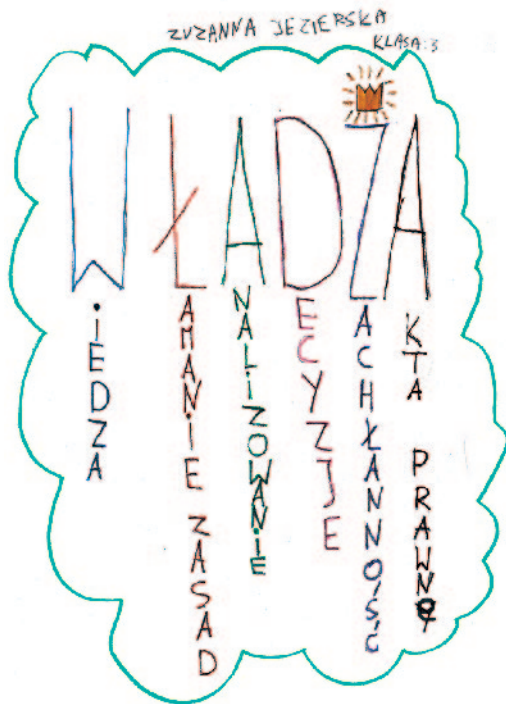 ZUZANNA JEZIERSKA
KLASA:3
WŁADZA
WiEDZA
ŁAMANiE ZASAD
ANALiZOWANiE
DECYZJE
ZACHŁANNOŚĆ
AKTA PRAWNE